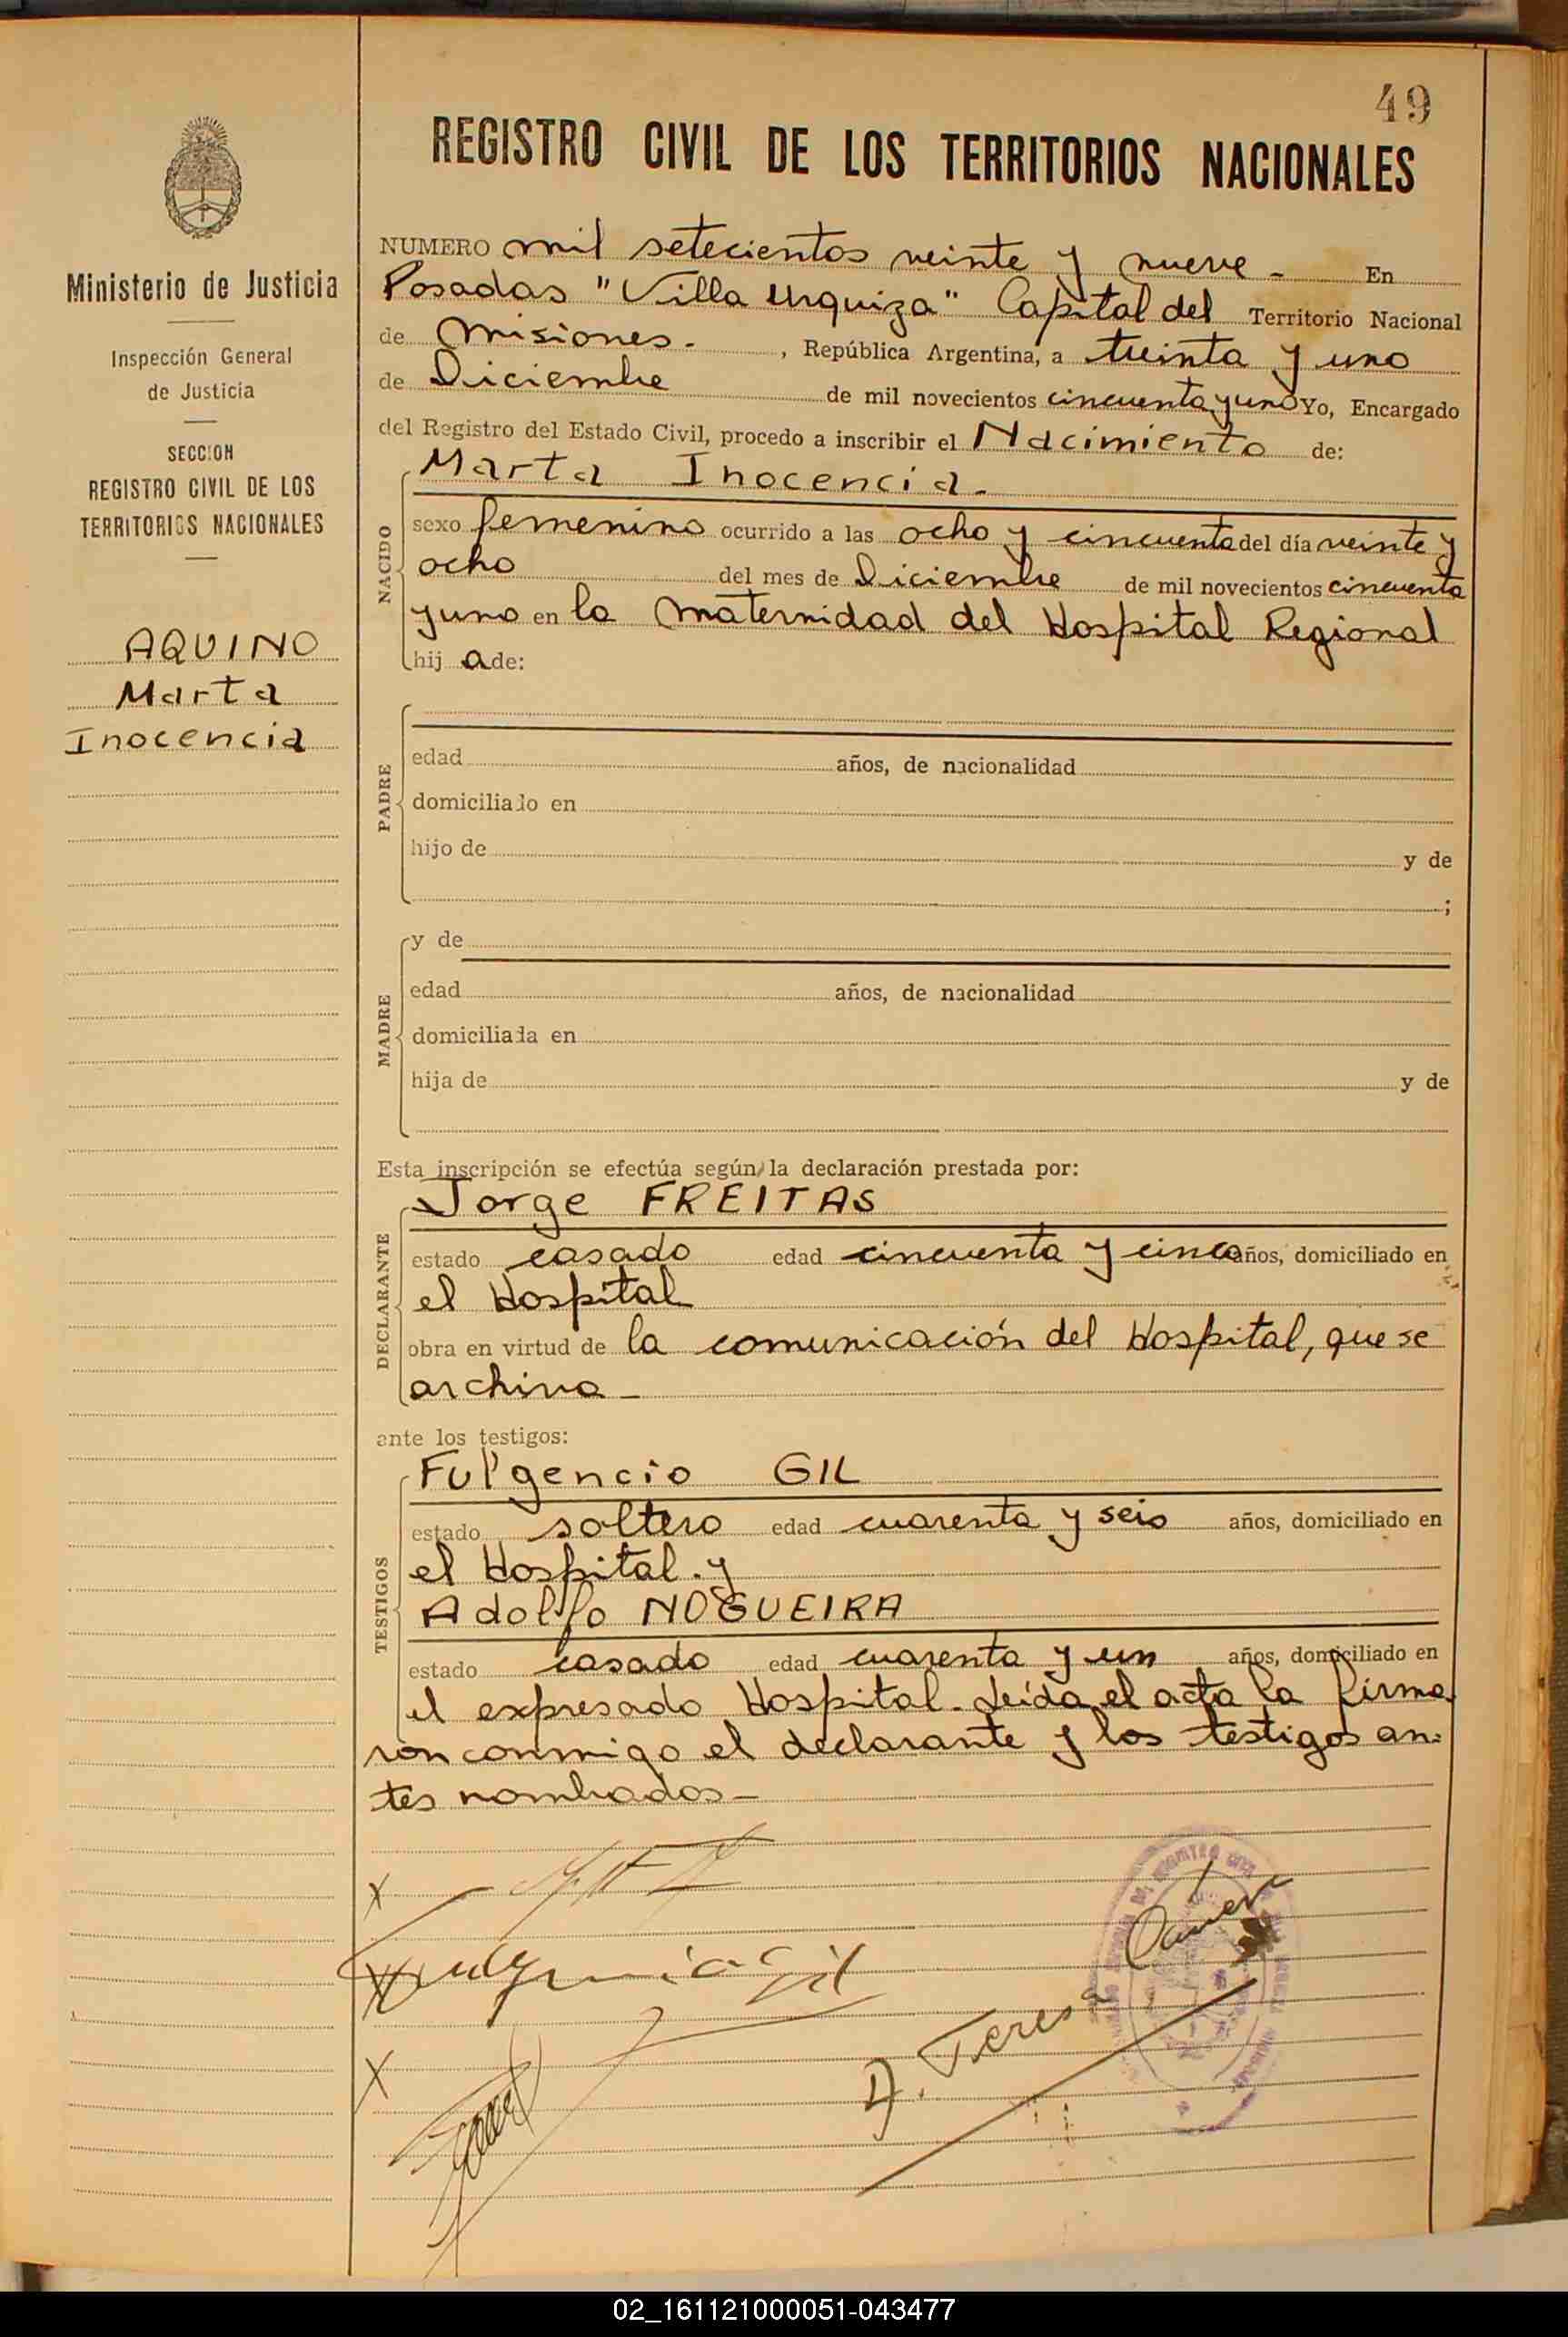 49
REGISTRO CIVIL DE LOS TERRITORIOS NACIONALES
Ministerio de Justicia
Inspección General
de Justicia
SECCION
REGISTRO CIVIL DE LOS
TERRITORIOS NACIONALES
AQUINO
Marta
Inocencia
NUMERO mil setecientos veinte y nueve - En
Posadas "Villa Urquiza" Capital del Territorio Nacional
de Misiones. , República Argentina, a treinta y uno
de Diciembre de mil novecientos cincuenta y uno Yo, Encargado
del Registro del Estado Civil, procedo a inscribir el Nacimiento de:
Marta Inocencia.
NACIDO
sexo femenino ocurrido a las ocho y cincuenta del día veinte y
ocho del mes de Diciembre de mil novecientos cincuenta
y uno en la Maternidad del Hospital Regional
hij a de:
PADRE
edad años, de nacionalidad
domiciliado en
hijo de y de
;
MADRE
y de
edad años, de nacionalidad
domiciliada en
hija de y de
Esta inscripción se efectúa según la declaración prestada por:
DECLARANTE
Jorge FREITAS
estado casado edad cincuenta y cinco años, domiciliado en
el Hospital
obra en virtud de la comunicación del Hospital, que se
archiva -
ante los testigos:
TESTIGOS
Fulgencio GIL
estado soltero edad cuarenta y seis años, domiciliado en
el Hospital. y
Adolfo NOGUEIRA
estado casado edad cuarenta y un años, domiciliado en
el expresado Hospital. Leída el acta la firma
ron conmigo el declarante y los testigos an-
tes nombrados -
X
X
Gil
X
D. Teresa
02_161121000051-043477